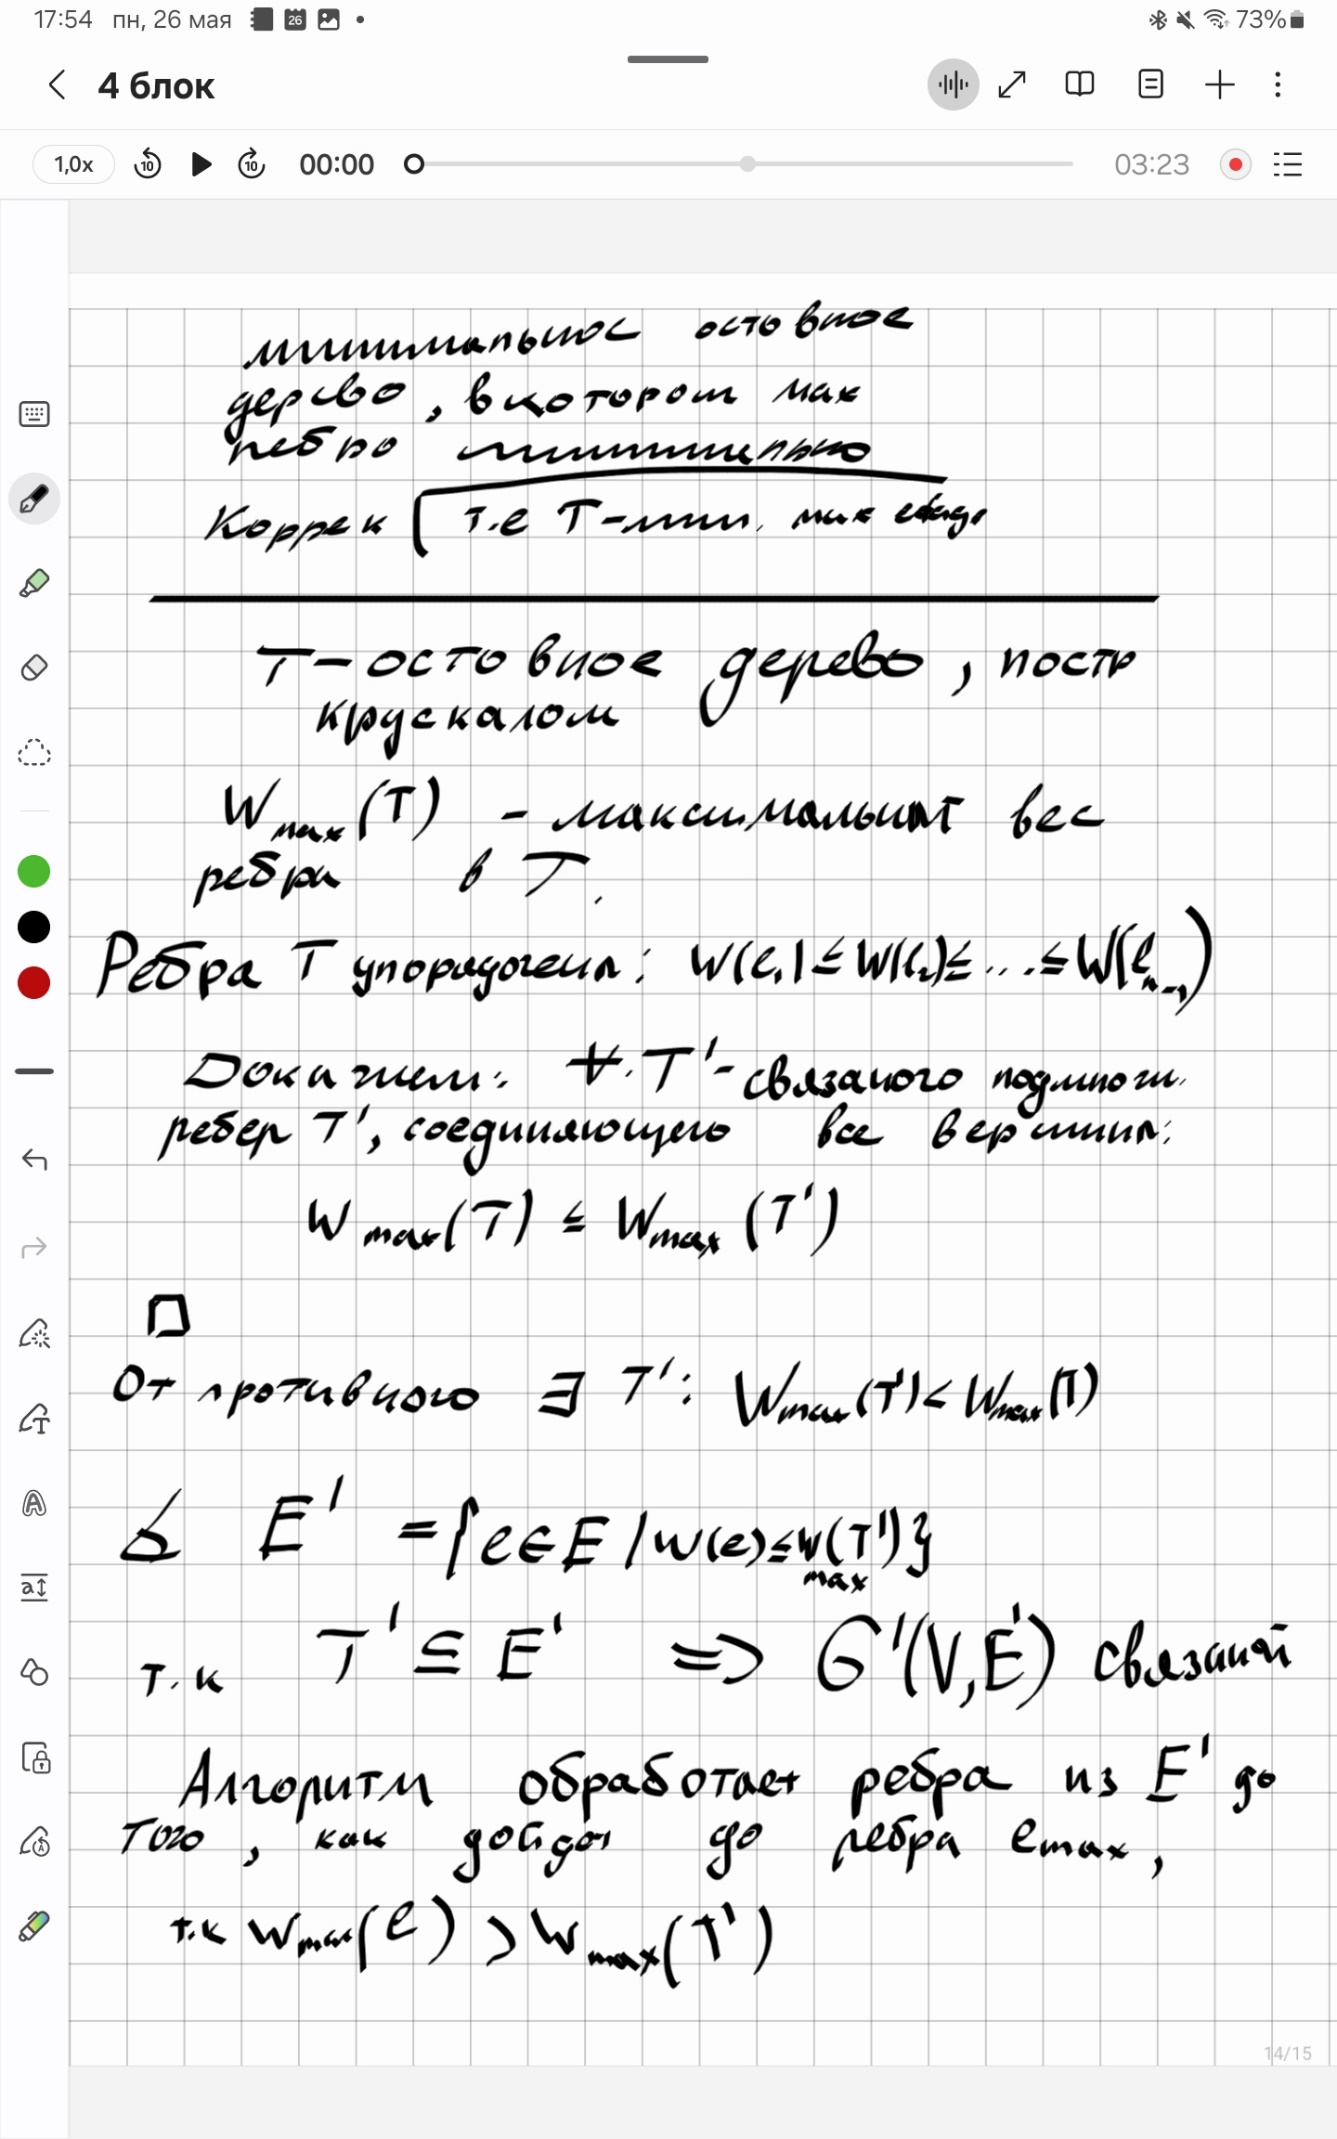 17:54 пн, 26 мая 26 73%
4 блок
1,0x 10 10 00:00 03:23
минимальное остовное
дерево, в котором мах
ребро минимально
Коррек [т.е T-мин. мах
T - остовное дерево, постр
крускалом
W max (T) - максимальный вес
ребра в T.
Ребра T упорядочены: W(e₁) ≤ W(e₂) ≤ ... ≤ W(e n-1)
Докажем: ∀ T' - связаного подмнож.
ребер T', соединяющего все вершины:
W max (T) ≤ W max (T')
□
От противного ∃ T': W max (T') < W max (T)
E' = {e ∈ E / w(e) ≤ W max (T')}
т.к T' ⊆ E' => G'(V, E') связаный
Алгоритм обработает ребра из E' до
того, как дойдет до ребра e max,
т.к W max (e) > W max (T')
14/15